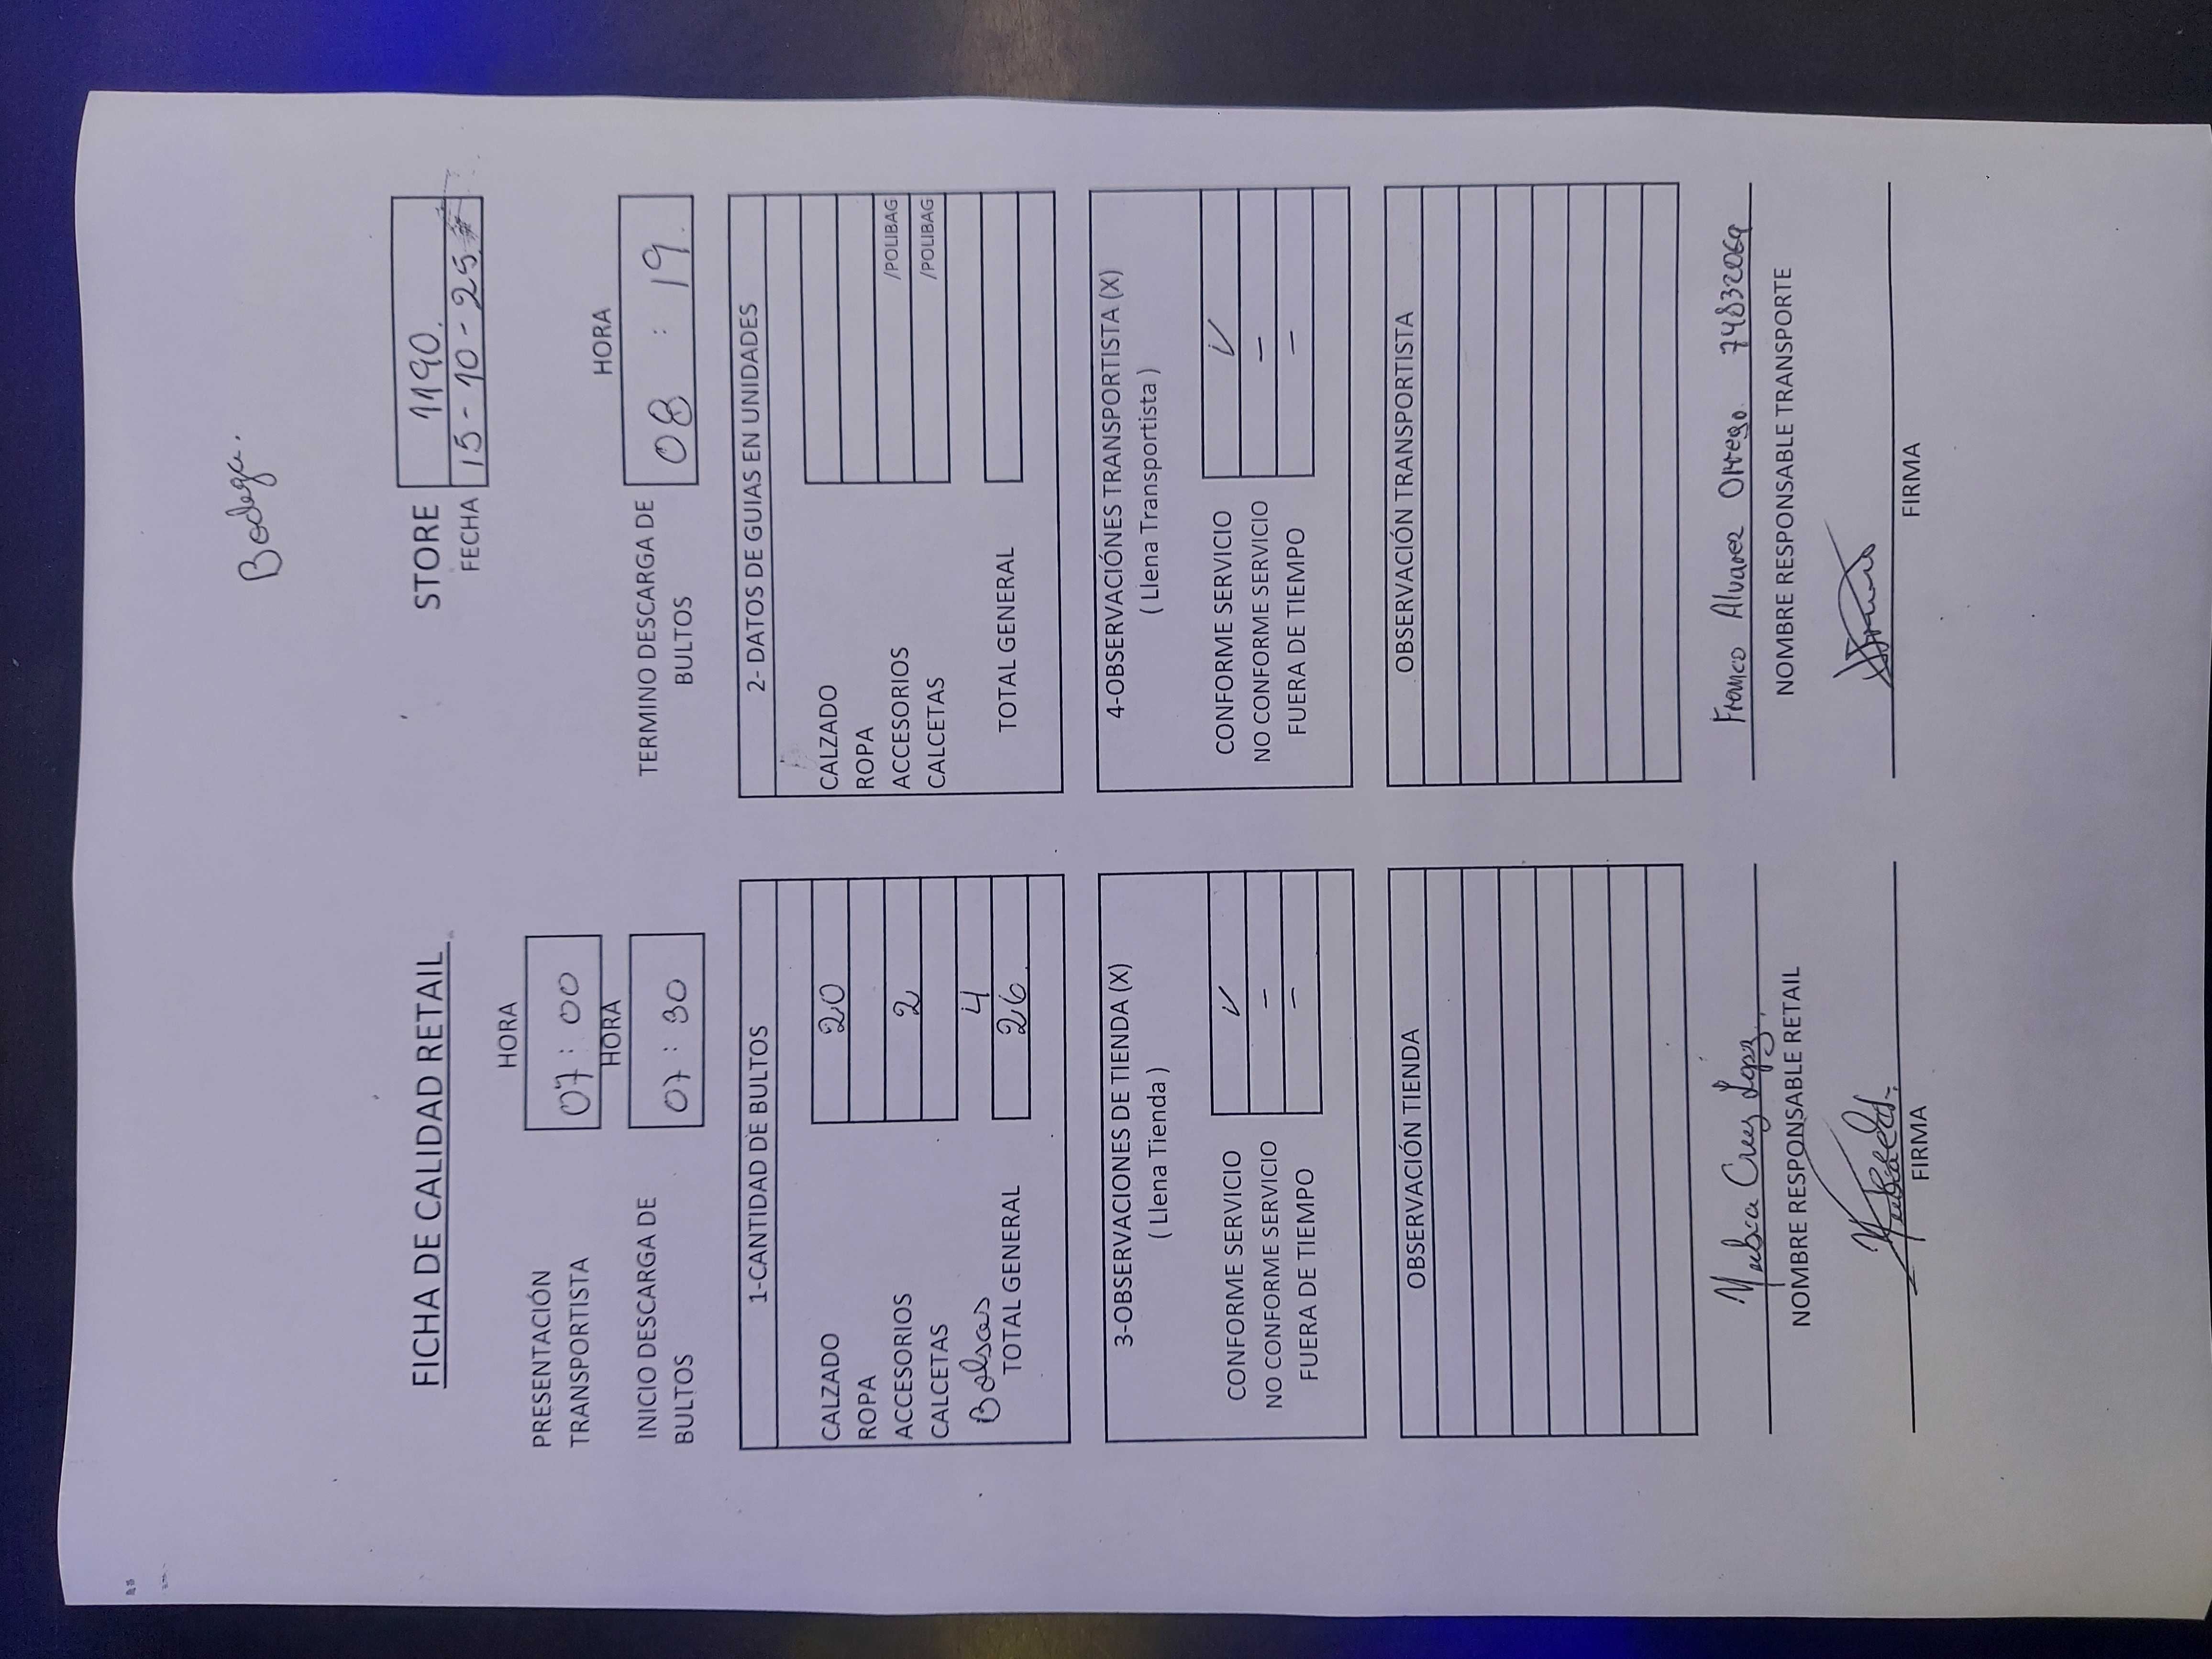 Bodega.
FICHA DE CALIDAD RETAIL
STORE 1190.
FECHA 15-10-25
HORA
PRESENTACIÓN TRANSPORTISTA 07:00
HORA
INICIO DESCARGA DE BULTOS 07:30
HORA
TERMINO DESCARGA DE BULTOS 08:19
1-CANTIDAD DE BULTOS
CALZADO 20
ROPA
ACCESORIOS 2
CALCETAS
Bolsas 4
TOTAL GENERAL 26
2- DATOS DE GUIAS EN UNIDADES
CALZADO
ROPA
ACCESORIOS /POLIBAG
CALCETAS /POLIBAG
TOTAL GENERAL
3-OBSERVACIONES DE TIENDA (X)
( Llena Tienda )
CONFORME SERVICIO ✓
NO CONFORME SERVICIO –
FUERA DE TIEMPO –
4-OBSERVACIÓNES TRANSPORTISTA (X)
( Llena Transportista )
CONFORME SERVICIO ✓
NO CONFORME SERVICIO –
FUERA DE TIEMPO –
OBSERVACIÓN TIENDA
OBSERVACIÓN TRANSPORTISTA
Cruz Lopez
NOMBRE RESPONSABLE RETAIL
FIRMA
Franco Alvarez Orrego 74832069
NOMBRE RESPONSABLE TRANSPORTE
FIRMA